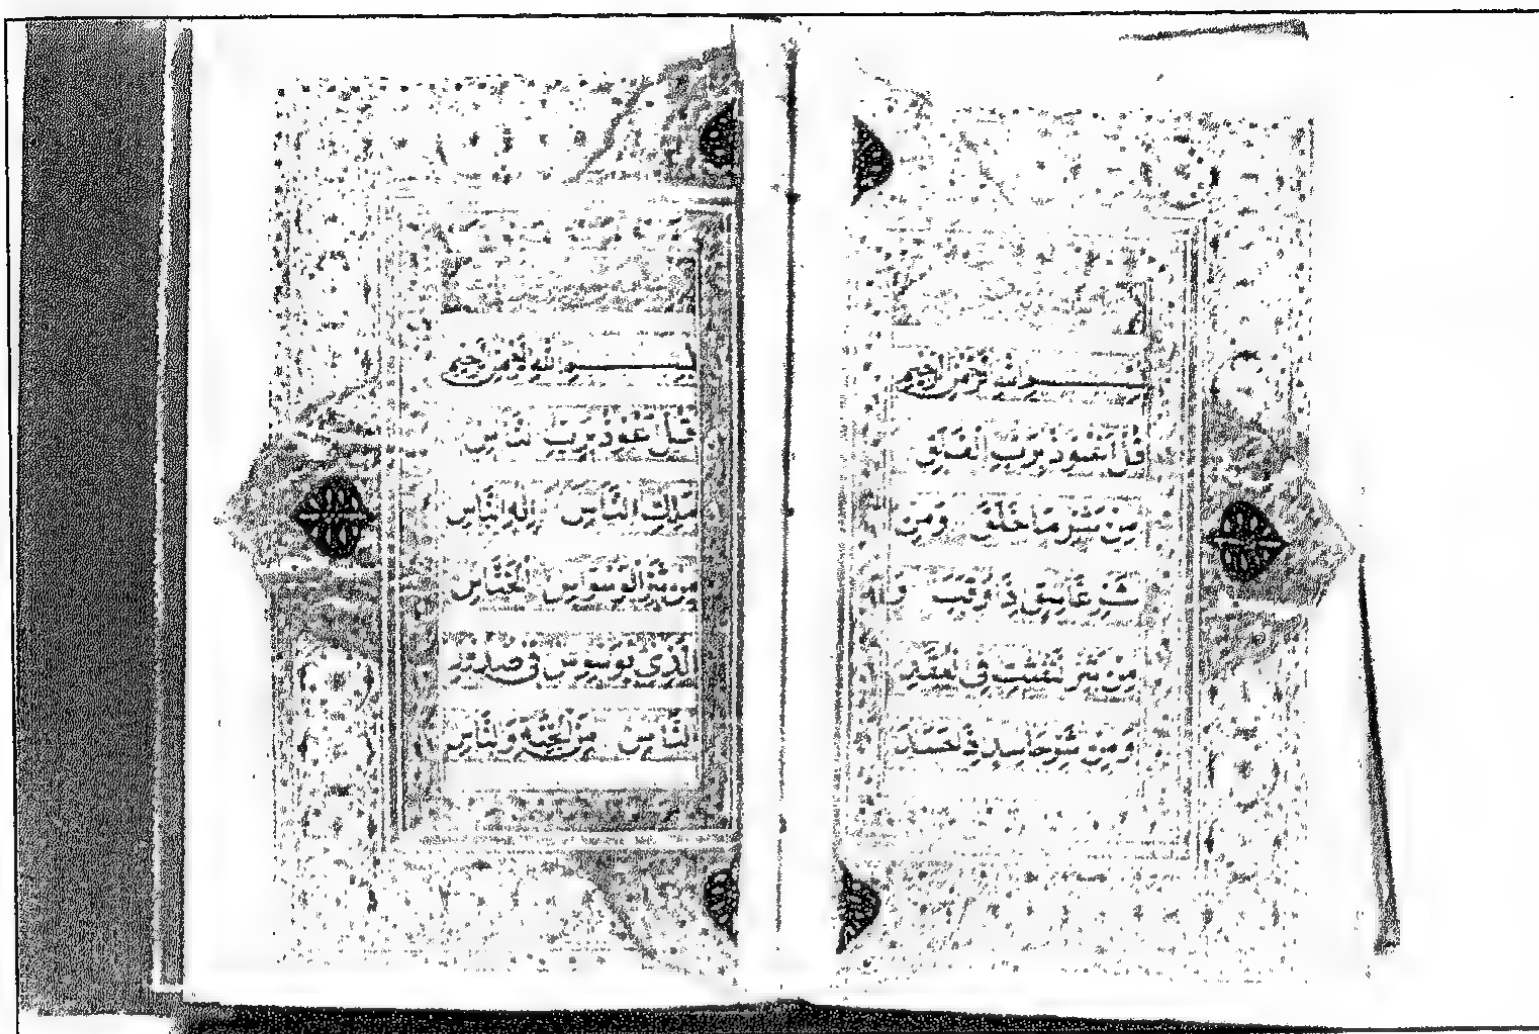 بِسْمِ اللهِ الرَّحْمٰنِ الرَّحِيمِ
قُلْ أَعُوذُ بِرَبِّ الْفَلَقِ
مِنْ شَرِّ مَا خَلَقَ وَمِنْ
شَرِّ غَاسِقٍ إِذَا وَقَبَ وَ
مِنْ شَرِّ النَّفّٰثٰتِ فِي الْعُقَدِ
وَمِنْ شَرِّ حَاسِدٍ إِذَا حَسَدَ
بِسْمِ اللهِ الرَّحْمٰنِ الرَّحِيمِ
قُلْ أَعُوذُ بِرَبِّ النَّاسِ
مَلِكِ النَّاسِ إِلٰهِ النَّاسِ
مِنْ شَرِّ الْوَسْوَاسِ الْخَنَّاسِ
الَّذِي يُوَسْوِسُ فِي صُدُورِ
النَّاسِ مِنَ الْجِنَّةِ وَالنَّاسِ